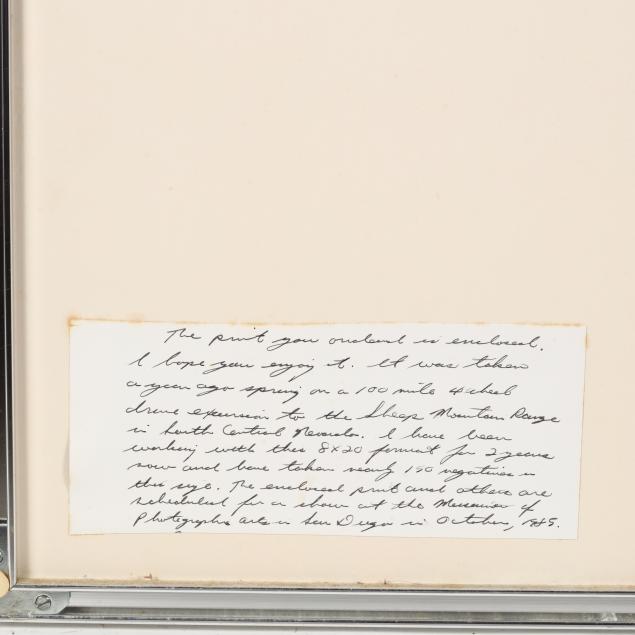 The print you ordered is enclosed.
I hope you enjoy it. It was taken
a year ago spring on a 100 mile 4 wheel
drive excursion to the Sheep Mountain Range
in South Central Nevada. I have been
working with this 8x20 format for 2 years
now and have taken nearly 150 negatives in
this size. The enclosed print and others are
scheduled for a show at the Museum of
Photographic arts in San Diego in October, 1985.